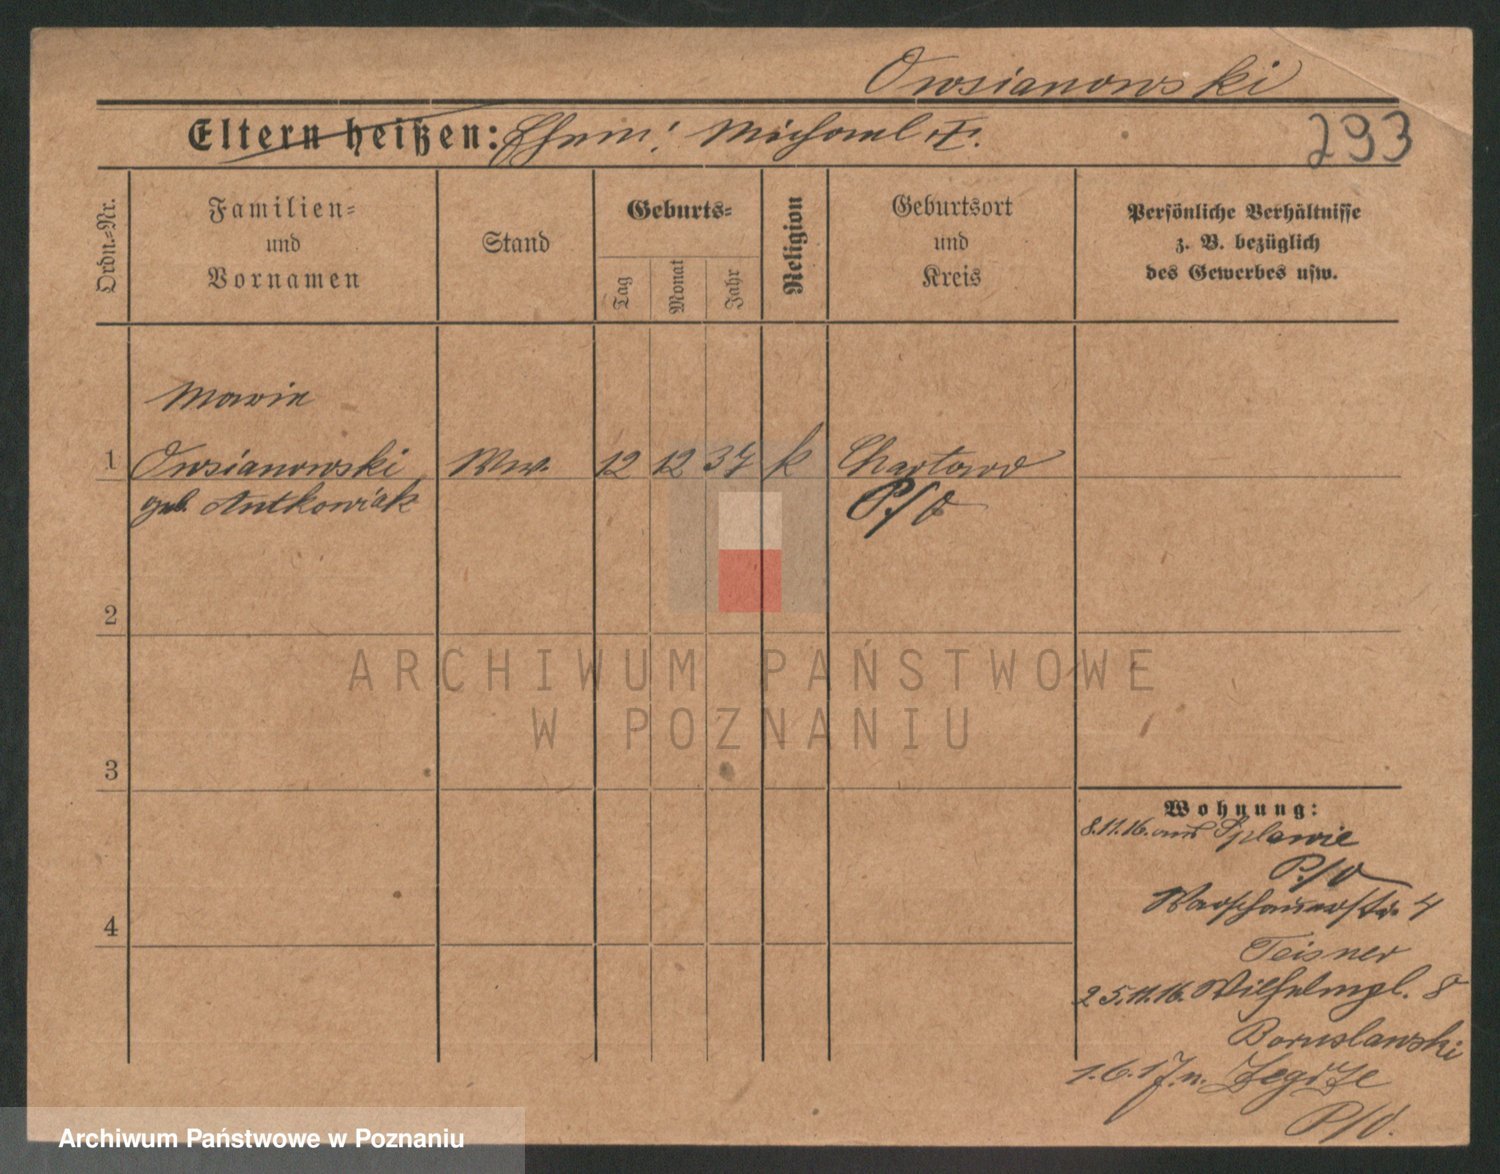 Owsianowski
Eltern heißen: Ehem: Michael †.
293
Ordn.-Nr.
Familien=
und
Vornamen
Stand
Geburts=
Tag
Monat
Jahr
Religion
Geburtsort
und
Kreis
Persönliche Verhältnisse
z. B. bezüglich
des Gewerbes usw.
Marie
1 Owsianowski Ww. 12 12 37 k Chartowo
geb. Antkowiak P./O
2
ARCHIWUM PAŃSTWOWE
W POZNANIU
3
Wohnung:
8.11.16. aus Splawie
P./O
Warschauerstr. 4
4
Teisner
25.11.16. Wilhelmpl. 8
Boruslawski
1.6.17. n. Zegrze
P/O.
Archiwum Państwowe w Poznaniu